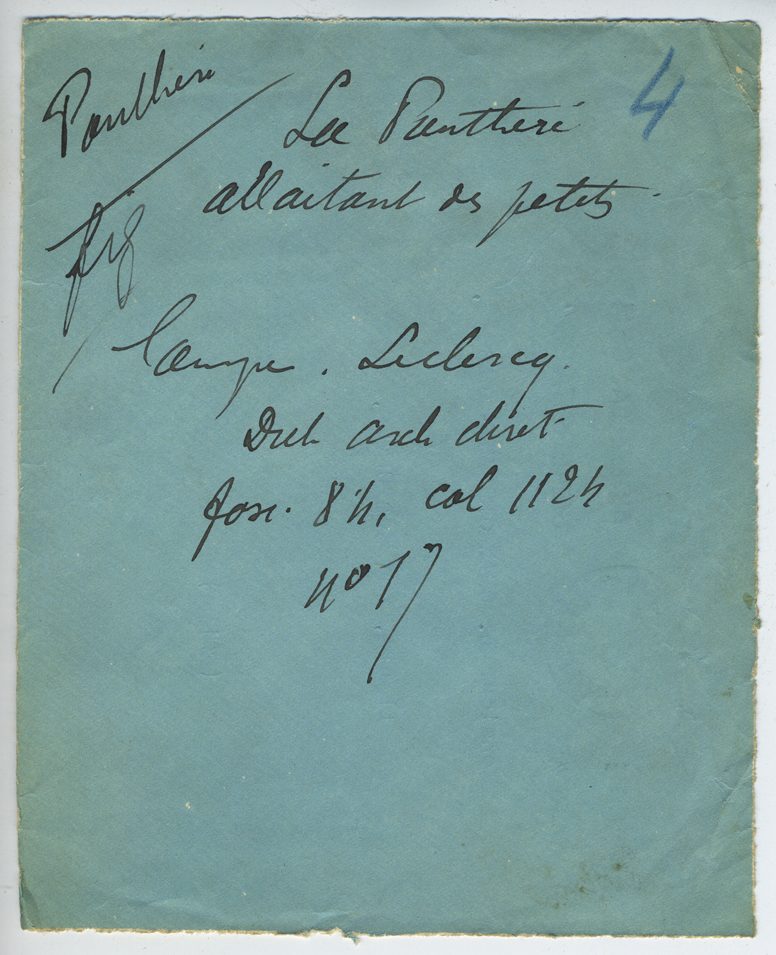 Panthère
4
La Panthère
allaitant des petits.
fig
Leclercq.
Dict arch chret
fasc. 84, col 1124
no 17